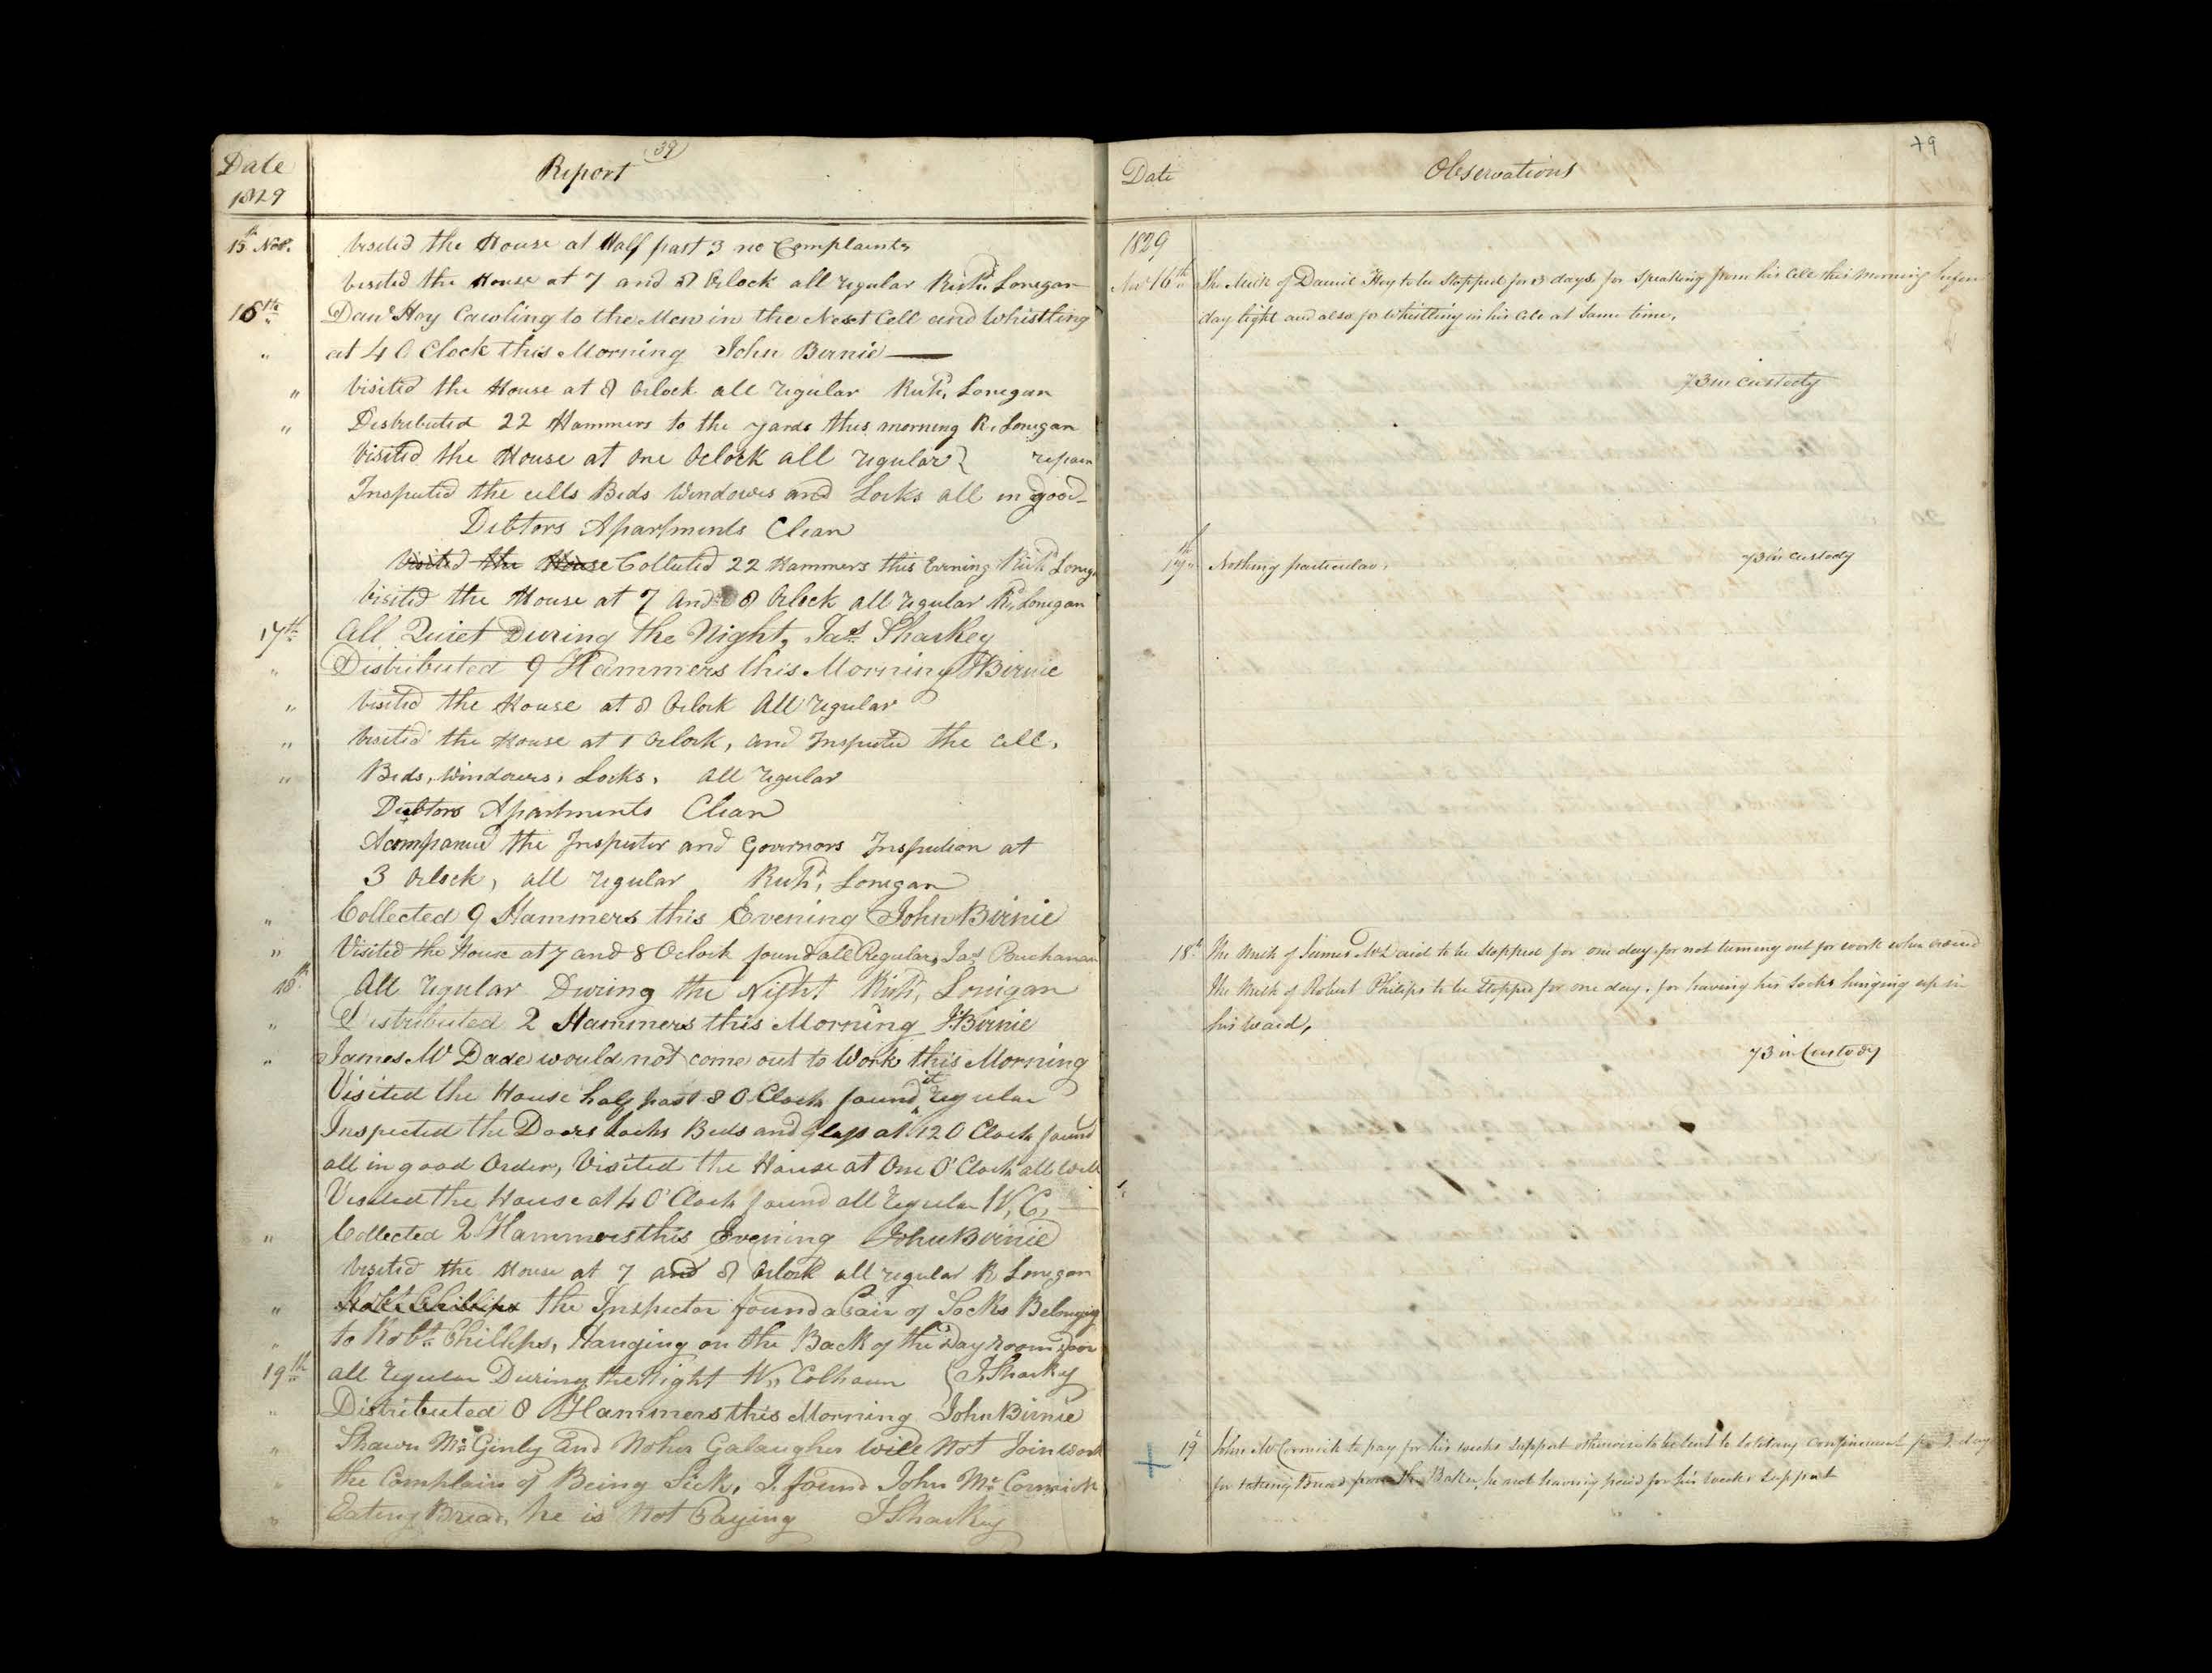 Date
1829
Report (39)
15th Nov. Visited the House at Half past 3 no Complaints
Visited the House at 7 and 8 Oclock all regular Richd. Lonegan
16th „ Danl Hoy Cawling to the Men in the Next Cell and Whistling
„ at 4 O Clock this Morning John Birnie
„ Visited the House at 8 Oclock all regular Richd. Lonegan
„ Distributed 22 Hammers to the yards this morning R. Lonegan
Visited the House at One Oclock all regular } repair
Inspected the cells Beds Windows and Locks all in good
Debtors Apartments Clean
Visited the House Collected 22 Hammers this Evening Richd Loneg
Visited the House at 7 and 8 Oclock all regular Rd. Lonegan
17th „ All Quiet During the Night, Jas Sharkey
„ Distributed 9 Hammers this Morning JBirnie
„ Visited the House at 8 Oclock All regular
„ Visited the House at 1 Oclock, and Inspected the Cell,
„ Beds, Windows, Locks, all regular
Debtors Apartments Clean
Acompanied the Inspector and Governors Inspection at
3 Oclock, all regular Richd, Lonegan
„ Collected 9 Hammers this Evening John Birnie
„ Visited the House at 7 and 8 Oclock found all Regular, Jas Buchanan
18th All regular During the Night Richd, Lonigan
„ Distributed 2 Hammers this Morning JBirnie
„ James McDade would not come out to Work this Morning
Visited the House half past 8 O Clock found it regular
Inspected the Doors Locks Beds and glass at 12 O Clock found
all in good Order, Visited the House at One O'Clock all Well
Visited the House at 4 O'Clock found all regular W, C,
„ Collected 2 Hammers this Evening John Birnie
Visited the House at 7 and 8 Oclock all regular R Lonegan
„ Robt Phillips the Inspector found a Pair of Socks Belonging
„ to Robt Phillips, Hanging on the Back of the Day room door
19th „ all regular During the Night Wm Colhoun { J Sharkey
„ Distributed 8 Hammers this Morning John Birnie
„ Shawn McGinly and Galaugher will Not Join work
„ the Complain of Being Sick, I found John McCormick
„ Eating Bread, he is Not Paying J Sharkey
Date
Observations
79
1829
Nov 16th The Milk of Daniel Hoy to be Stopped for 3 days for Speaking from his Cell this morning before
day light and also for Whistling in his Cell at Same time,
73 in custody
17th „ Nothing particular, 73 in custody
18th The Milk of James McDaid to be Stopped for one day, for not turning out for work when
The Milk of Robert Philips to be Stopped for one day, for having his Socks hinging up in
his ward,
73 in Custody
19th John McCormick to pay for his weeks Support otherwise to be sent to Solitary Confinement for day
for taking Bread from the Baker, he not having paid for his weeks Support